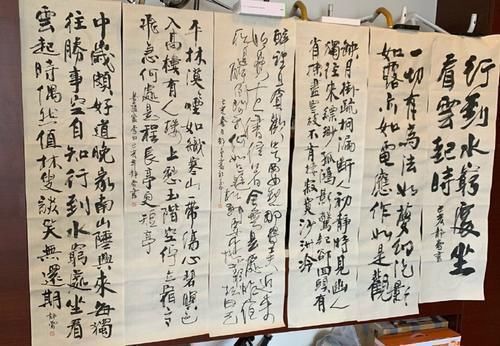 行到水窮處坐
看雲起時
一切有為法如夢幻泡影
如露亦如電應作如是觀
缺月掛疏桐漏斷人初靜時見幽人
獨往來縹緲孤鴻影驚起卻回頭有
省揀盡寒枝不肯棲寂寞沙洲冷
醉裡且貪歡笑要愁那得工夫近來
始覺古人書信著全無是處昨夜
平林漠漠煙如織寒山一帶傷心碧暝色
入高樓有人樓上愁玉階空佇立宿鳥
飛急何處是歸程長亭更短亭
中歲頗好道晚家南山陲興來每獨
往勝事空自知行到水窮處坐看
雲起時偶然值林叟談笑無還期